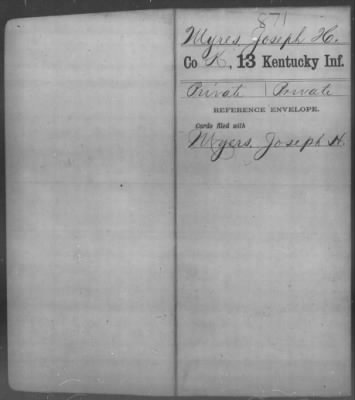 871
Myres, Joseph H.
Co K., 13 Kentucky Inf.
Private | Private
REFERENCE ENVELOPE.
Cards filed with
Myers, Joseph H.